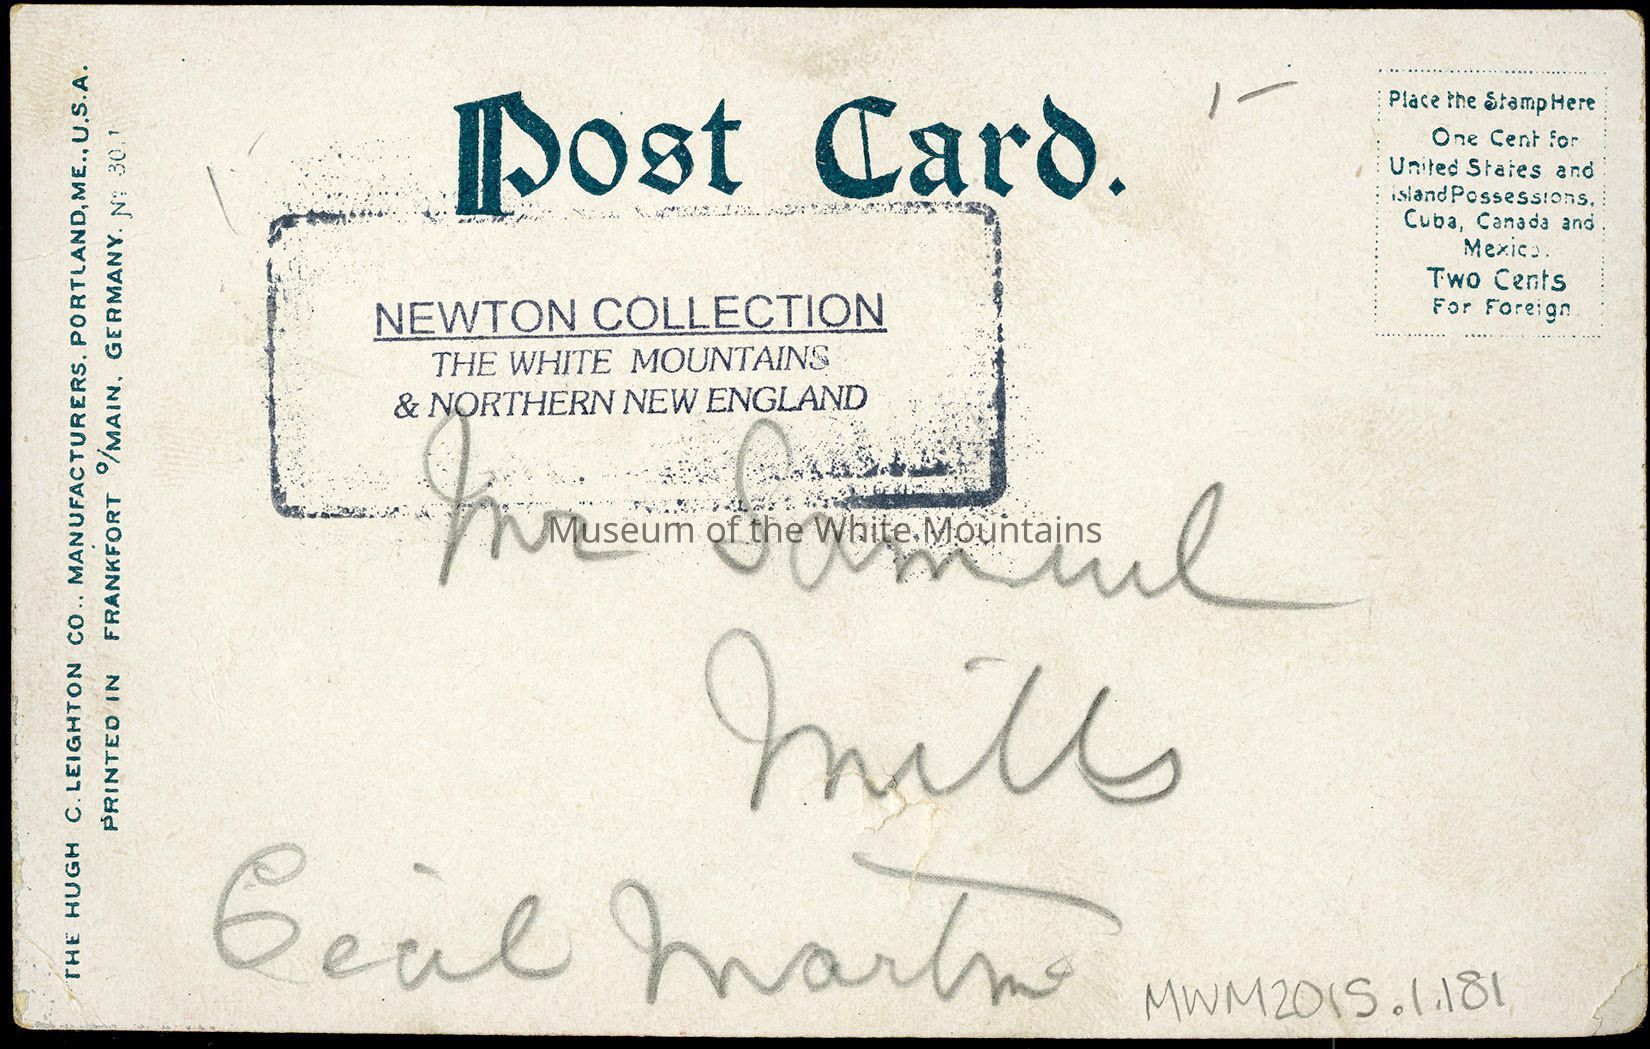 Post Card.
1-
Place the Stamp Here
One Cent for
United States and
Island Possessions,
Cuba, Canada and
Mexico.
Two Cents
For Foreign
NEWTON COLLECTION
THE WHITE MOUNTAINS
& NORTHERN NEW ENGLAND
Museum of the White Mountains
Mr Samuel
Mills
Cecil Martin
MWM2015.1.181
THE HUGH C. LEIGHTON CO., MANUFACTURERS, PORTLAND, ME., U.S.A.
PRINTED IN FRANKFORT o/MAIN, GERMANY. No